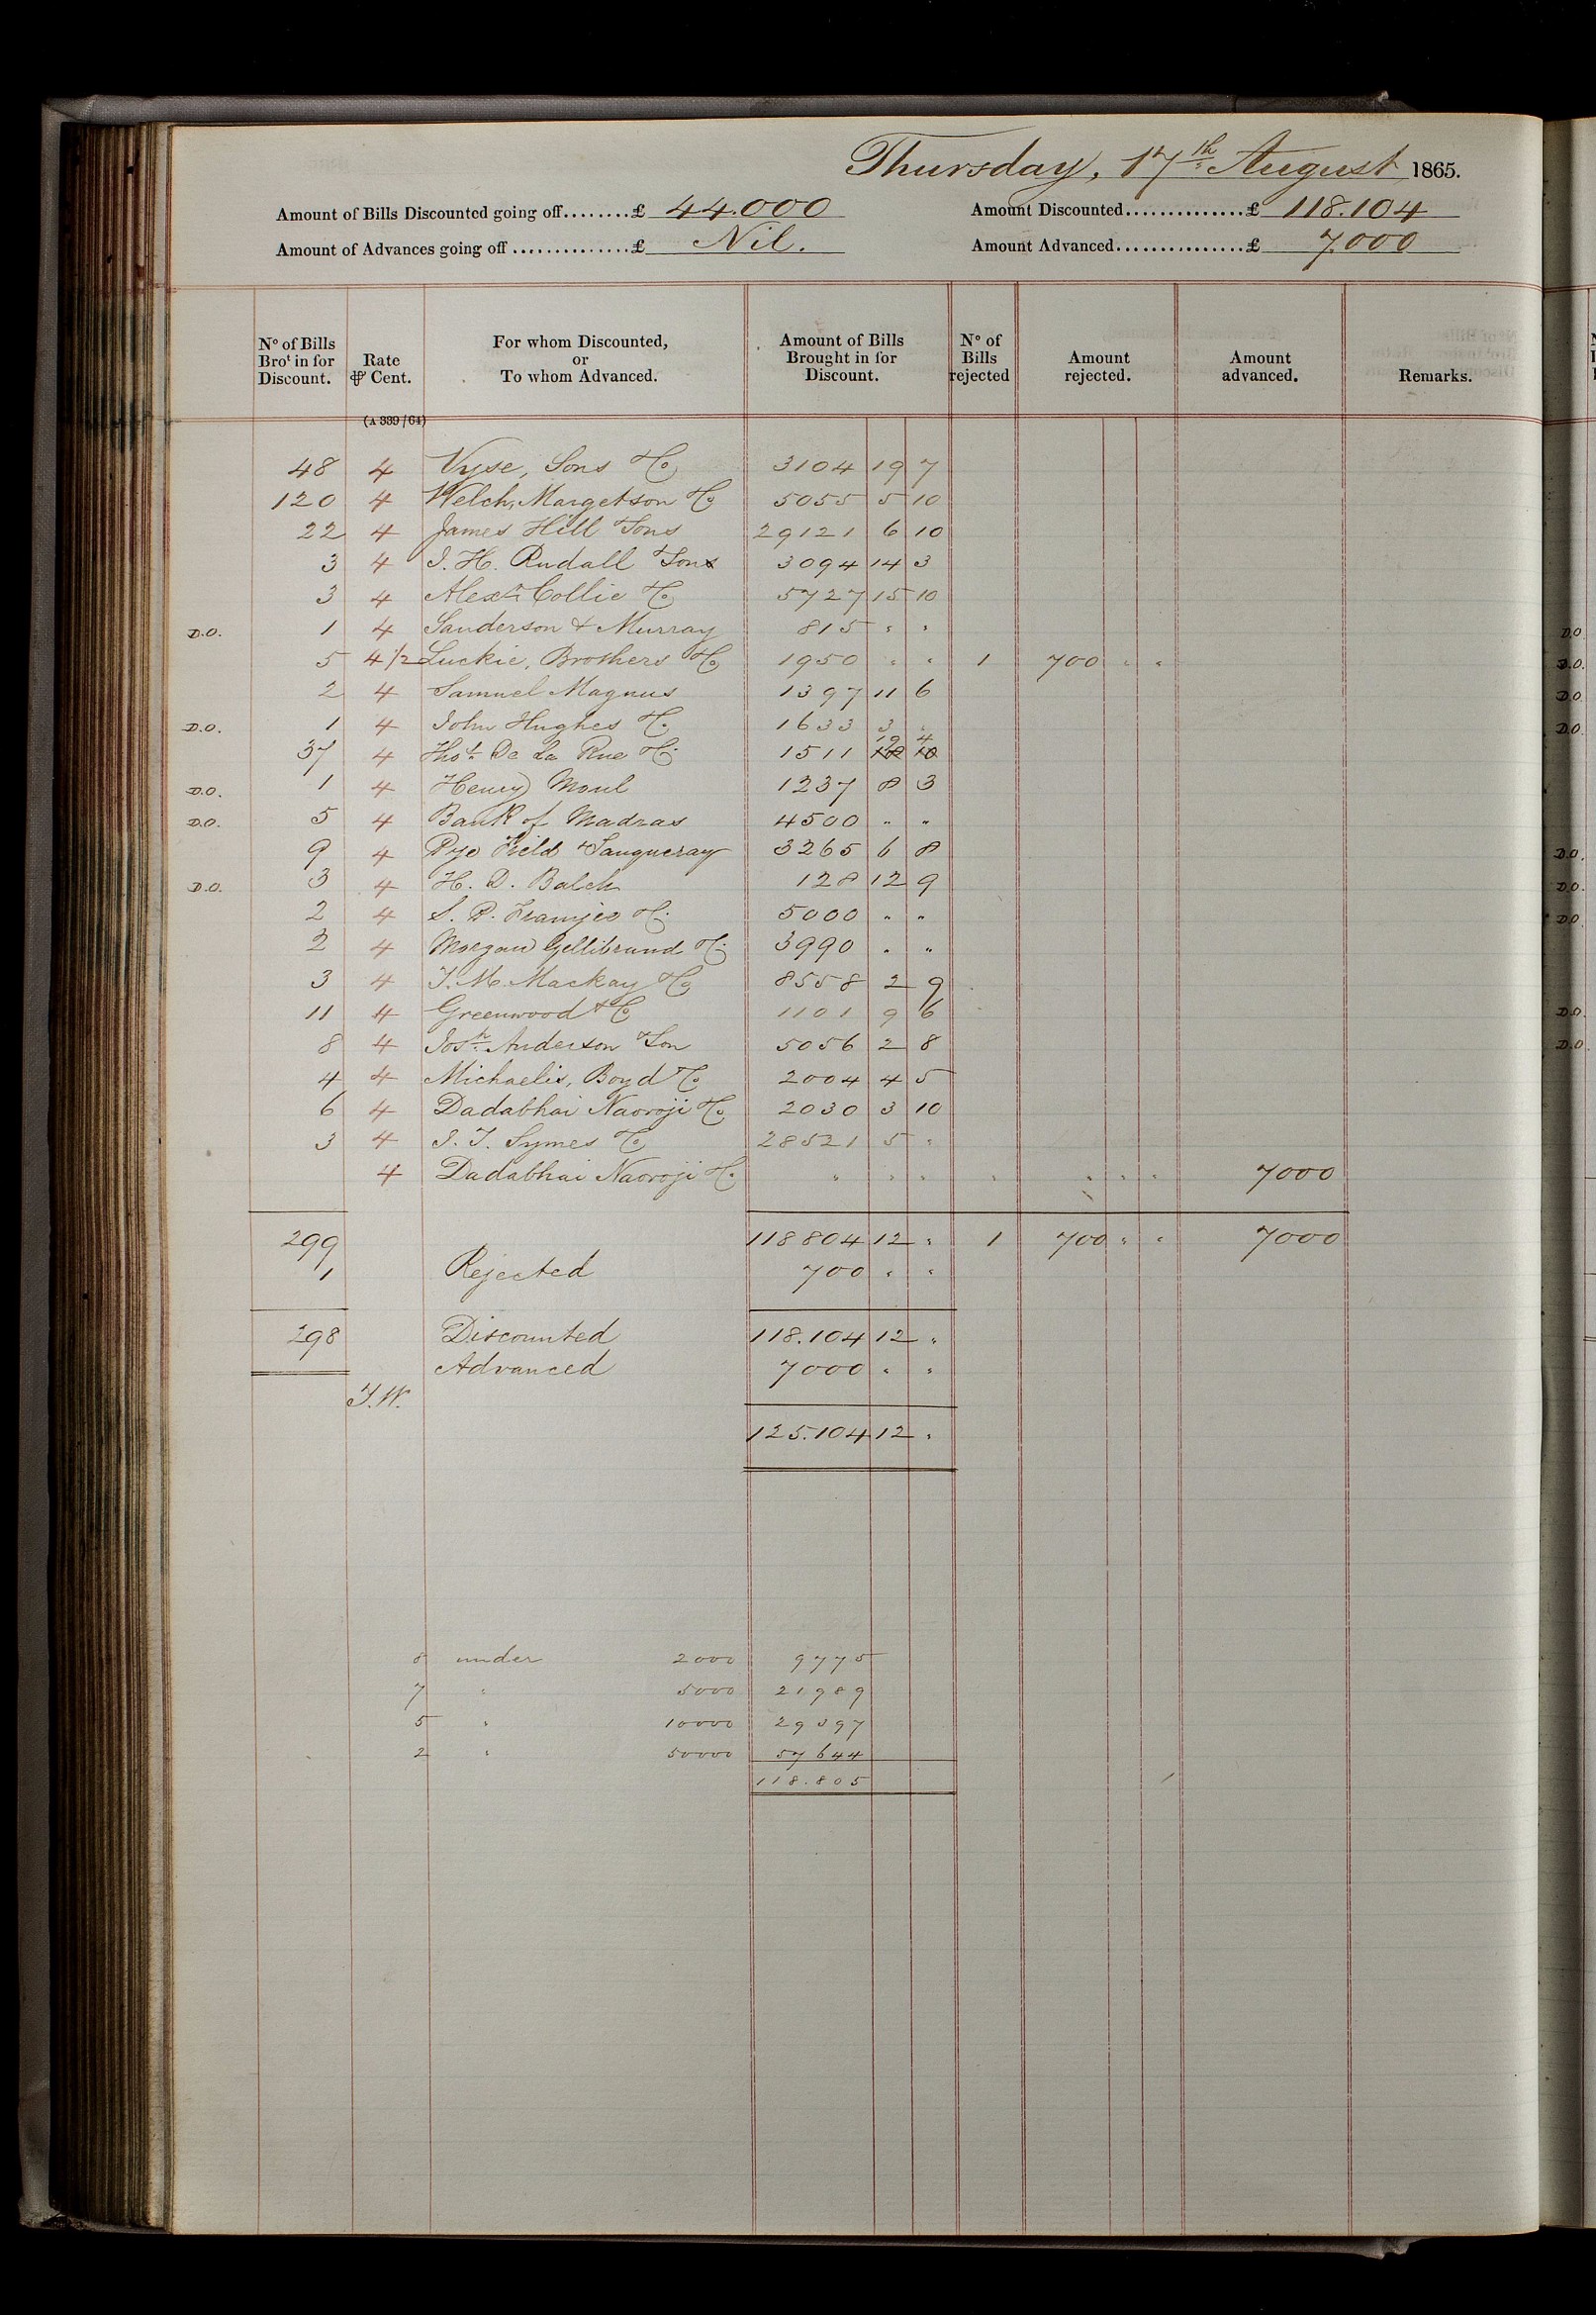 Thursday, 17th August 1865.
Amount of Bills Discounted going off........£ 44.000 Amount Discounted..............£ 118.104
Amount of Advances going off...............£ Nil. Amount Advanced................£ 7.000
No of Bills Brot in for Discount. Rate ⅌ Cent. For whom Discounted, or To whom Advanced. Amount of Bills Brought in for Discount. No of Bills rejected Amount rejected. Amount advanced. Remarks.
(A 339/64)
48 4 Vyse, Sons & Co 3104 19 7
120 4 Welch, Margetson & Co 5055 5 10
22 4 James Hill & Sons 29121 6 10
3 4 J. H. Rudall & Sons 3094 14 3
3 4 Alexr Collie & Co 5727 15 10
D.O. 1 4 Sanderson & Murray 815 " "
5 4 1/2 Luckie, Brothers & Co 1950 " " 1 700 " "
2 4 Samuel Magnus 1397 11 6
D.O. 1 4 John Hughes & Co 1633 3 "
37 4 Thos De La Rue & Co 1511 19 4
D.O. 1 4 Henry Moul 1237 8 3
D.O. 5 4 Bank of Madras 4500 " "
9 4 Pye Field & Tanqueray 3265 6 8
D.O. 3 4 H. D. Balch 128 12 9
2 4 S. P. Framjee & Co 5000 " "
2 4 Morgan Gellibrand & Co 3990 " "
3 4 T. M. Mackay & Co 8558 2 9
11 4 Greenwood & Co 1101 9 6
8 4 Josh Anderson & Son 5056 2 8
4 4 Michaelis, Boyd & Co 2004 4 5
6 4 Dadabhai Naoroji & Co 2030 3 10
3 4 J. T. Symes & Co 28521 5 "
4 Dadabhai Naoroji & Co " " " " " " " 7000
299 118804 12 " 1 700 " " 7000
1 Rejected 700 " "
298 Discounted 118.104 12 "
Advanced 7000 " "
T.W.
125.104 12 "
8 under 2000 9775
7 " 5000 21989
5 " 10000 29397
2 " 50000 57644
118.805
D.O.
D.O.
D.O.
D.O.
D.O.
D.O.
D.O.
D.O.
D.O.